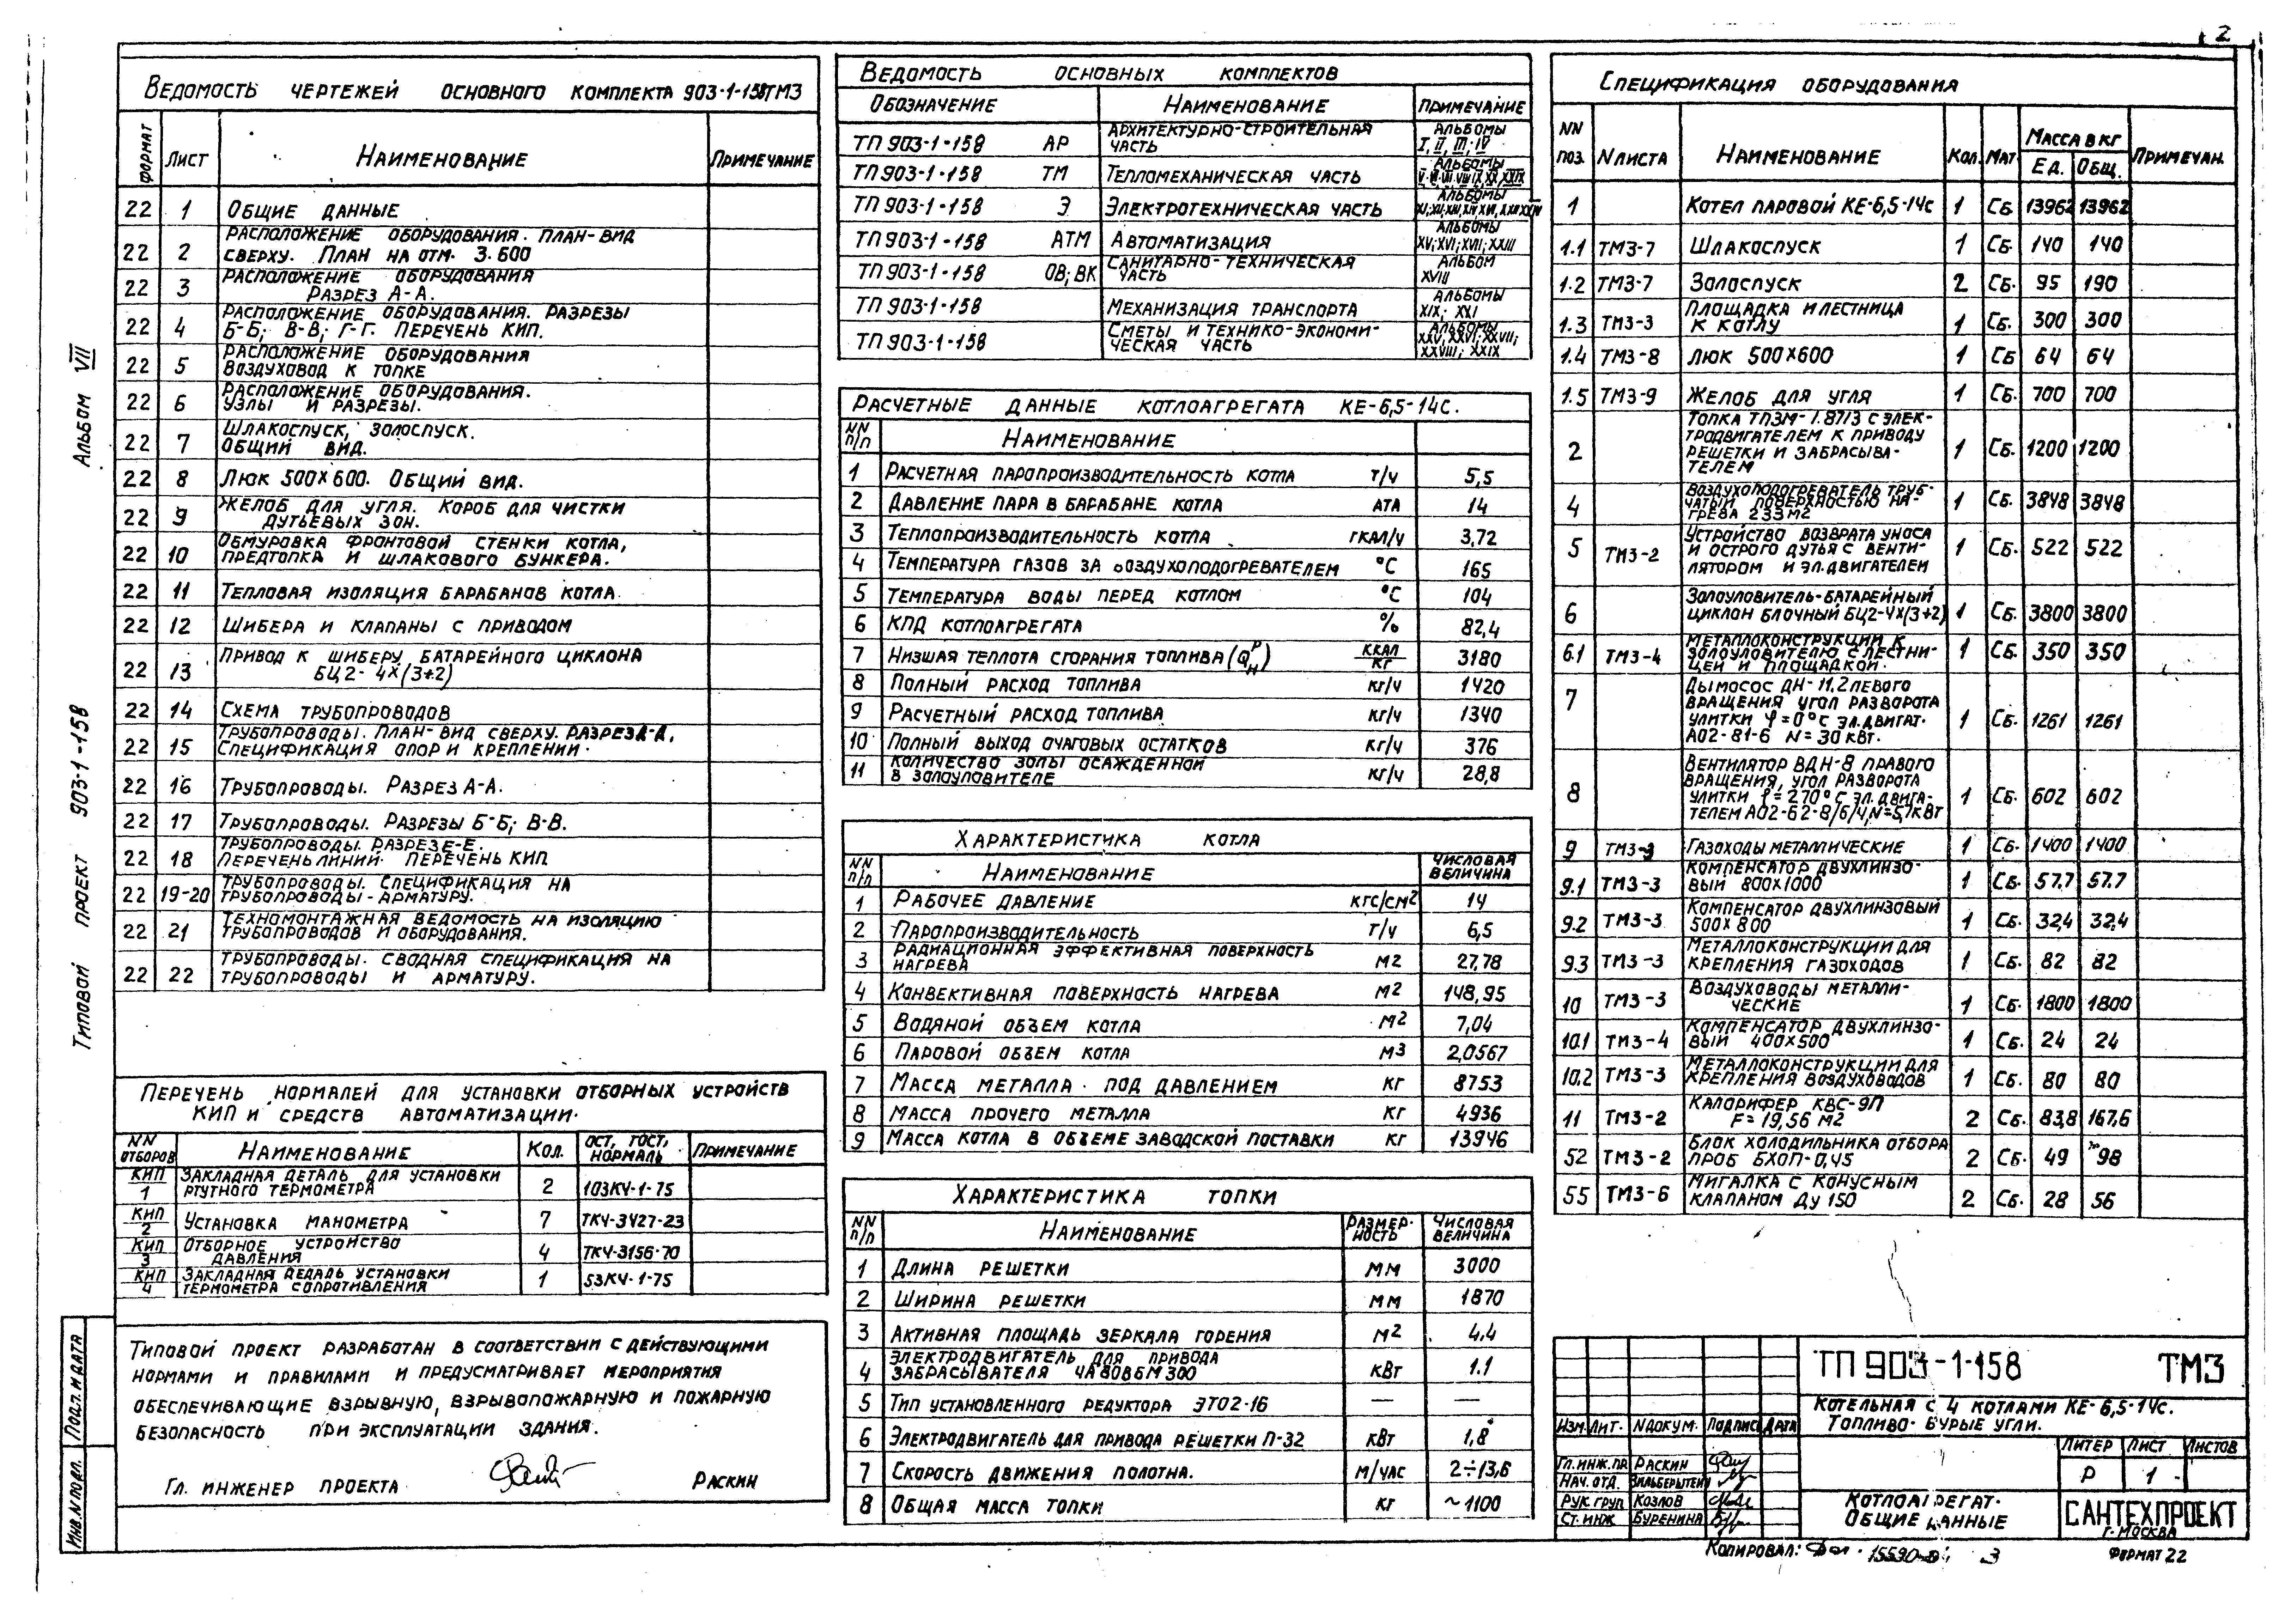 2
Альбом VII
Типовой проект 903-1-158
Ведомость чертежей основного комплекта 903-1-158ТМ3
Формат Лист Наименование Примечание
22 1 Общие данные
22 2 Расположение оборудования. План-вид
сверху. План на отм. 3.600
22 3 Расположение оборудования
Разрез А-А.
22 4 Расположение оборудования. Разрезы
Б-Б; В-В; Г-Г. Перечень КИП.
22 5 Расположение оборудования
Воздуховод к топке
22 6 Расположение оборудования.
Узлы и разрезы.
22 7 Шлакоспуск, золоспуск.
Общий вид.
22 8 Люк 500×600. Общий вид.
22 9 Желоб для угля. Короб для чистки
дутьевых зон.
22 10 Обмуровка фронтовой стенки котла,
предтопка и шлакового бункера.
22 11 Тепловая изоляция барабанов котла.
22 12 Шибера и клапаны с приводом
22 13 Привод к шиберу батарейного циклона
БЦ2-4×(3+2)
22 14 Схема трубопроводов
22 15 Трубопроводы. План-вид сверху. Разрез Д-Д,
Спецификация опор и креплении.
22 16 Трубопроводы. Разрез А-А.
22 17 Трубопроводы. Разрезы Б-Б; В-В.
22 18 Трубопроводы. Разрез Е-Е.
Перечень линий. Перечень КИП
22 19-20 Трубопроводы. Спецификация на
трубопроводы-арматуру.
22 21 Техномонтажная ведомость на изоляцию
трубопроводов и оборудования.
22 22 Трубопроводы. Сводная спецификация на
трубопроводы и арматуру.
Перечень нормалей для установки отборных устройств
КИП и средств автоматизации.
NN отборов Наименование Кол. ОСТ, ГОСТ, нормаль Примечание
КИП 1 Закладная деталь для установки
ртутного термометра 2 103КЧ-1-75
КИП 2 Установка манометра 7 ТКЧ-3427-23
КИП 3 Отборное устройство
давления 4 ТКЧ-3156-70
КИП 4 Закладная дедаль установки
термометра сопротивления 1 53КЧ-1-75
Типовой проект разработан в соответствии с действующими
нормами и правилами и предусматривает мероприятия
обеспечивающие взрывную, взрывопожарную и пожарную
безопасность при эксплуатации здания.
Гл. инженер проекта Раскин
Инв. N подл. Подп. и дата
Ведомость основных комплектов
Обозначение Наименование Примечание
ТП 903-1-158 АР Архитектурно-строительная
часть Альбомы
I, II, III, IV
ТП 903-1-158 ТМ Тепломеханическая часть Альбомы
ТП 903-1-158 Э Электротехническая часть Альбомы
ТП 903-1-158 АТМ Автоматизация Альбомы
XV; XVI; XVII; XXIII
ТП 903-1-158 ОВ; ВК Санитарно-техническая
часть Альбом
XVIII
ТП 903-1-158 Механизация транспорта Альбомы
XIX; XXI
ТП 903-1-158 Сметы и технико-экономи-
ческая часть Альбомы
XXV, XXVI; XXVII;
XXVIII; XXIX
Расчетные данные котлоагрегата КЕ-6,5-14с.
NN п/п Наименование
1 Расчетная паропроизводительность котла т/ч 5,5
2 Давление пара в барабане котла ата 14
3 Теплопроизводительность котла гкал/ч 3,72
4 Температура газов за воздухоподогревателем °С 165
5 Температура воды перед котлом °С 104
6 КПД котлоагрегата % 82,4
7 Низшая теплота сгорания топлива (Qнр) ккал/кг 3180
8 Полный расход топлива кг/ч 1420
9 Расчетный расход топлива кг/ч 1340
10 Полный выход очаговых остатков кг/ч 376
11 Количество золы осажденной
в золоуловителе кг/ч 28,8
Характеристика котла
NN п/п Наименование Числовая величина
1 Рабочее давление кгс/см2 14
2 Паропроизводительность т/ч 6,5
3 Радиационная эффективная поверхность
нагрева м2 27,78
4 Конвективная поверхность нагрева м2 148,95
5 Водяной объем котла м2 7,04
6 Паровой объем котла м3 2,0567
7 Масса металла под давлением кг 8753
8 Масса прочего металла кг 4936
9 Масса котла в объеме заводской поставки кг 13946
Характеристика топки
NN п/п Наименование Размер-ность Числовая величина
1 Длина решетки мм 3000
2 Ширина решетки мм 1870
3 Активная площадь зеркала горения м2 4.4
4 Электродвигатель для привода
забрасывателя 4А80В6М300 кВт 1.1
5 Тип установленного редуктора ЭТО2-16 — —
6 Электродвигатель для привода решетки П-32 кВт 1,8
7 Скорость движения полотна. м/час 2÷13,6
8 Общая масса топки кг ~1100
Спецификация оборудования
NN поз. N листа Наименование Кол. Мат Масса в кг Примечан.
Ед. Общ.
1 Котел паровой КЕ-6,5-14с 1 Сб 13962 13962
1.1 ТМ3-7 Шлакоспуск 1 Сб. 140 140
1.2 ТМ3-7 Золоспуск 2 Сб. 95 190
1.3 ТМ3-3 Площадка и лестница
к котлу 1 Сб. 300 300
1.4 ТМ3-8 Люк 500×600 1 Сб 64 64
1.5 ТМ3-9 Желоб для угля 1 Сб. 700 700
2 Топка ТПЗМ-1.87/3 с элек-
тродвигателем к приводу
решетки и забрасыва-
телем 1 Сб. 1200 1200
4 Воздухоподогреватель труб-
чатый поверхностью на-
грева 233 м2 1 Сб. 3848 3848
5 ТМ3-2 Устройство возврата уноса
и острого дутья с венти-
лятором и эл. двигателем 1 Сб. 522 522
6 Золоуловитель-батарейный
циклон блочный БЦ2-4×(3+2) 1 Сб. 3800 3800
6.1 ТМ3-4 Металлоконструкции к
золоуловителю с лестни-
цей и площадкой. 1 Сб. 350 350
7 Дымосос ДН-11,2 левого
вращения угол разворота
улитки φ=0° с эл. двигат.
АО2-81-6 N=30 кВт. 1 Сб. 1261 1261
8 Вентилятор ВДН-8 правого
вращения, угол разворота
улитки φ=270° с эл. двига-
телем АО2-62-8/6/4, N=5,1кВт 1 Сб. 602 602
9 ТМ3-3 Газоходы металлические 1 Сб. 1400 1400
9.1 ТМ3-3 Компенсатор двухлинзо-
вый 800×1000 1 Сб. 57.7 57.7
9.2 ТМ3-3 Компенсатор двухлинзовый
500×800 1 Сб. 32,4 32,4
9.3 ТМ3-3 Металлоконструкции для
крепления газоходов 1 Сб. 82 82
10 ТМ3-3 Воздуховоды металли-
ческие 1 Сб. 1800 1800
10.1 ТМ3-4 Компенсатор двухлинзо-
вый 400×500 1 Сб. 24 24
10.2 ТМ3-3 Металлоконструкции для
крепления воздуховодов 1 Сб. 80 80
11 ТМ3-2 Калорифер КВС-9П
F=19,56 м2 2 Сб. 83,8 167,6
52 ТМ3-2 Блок холодильника отбора
проб БХОП-0,45 2 Сб. 49 98
55 ТМ3-6 Мигалка с конусным
клапаном Ду 150 2 Сб. 28 56
ТП 903-1-158 ТМ3
Котельная с 4 котлами КЕ-6,5-14с.
Топливо-бурые угли.
Изм. Лит. N докум. Подпись Дата
Гл. инж. пр. Раскин
Нач. отд. Зильберштейн
Рук. груп Козлов
Ст. инж Буренина
Литер Лист Листов
Р 1
Котлоагрегат.
Общие данные
САНТЕХПРОЕКТ
г. Москва
Копировал: 3 Формат 22